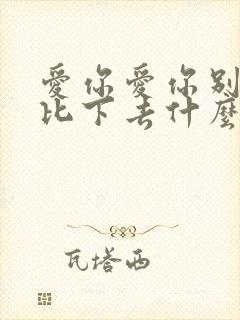 愛你愛你别
比下去什麼
瓦塔西